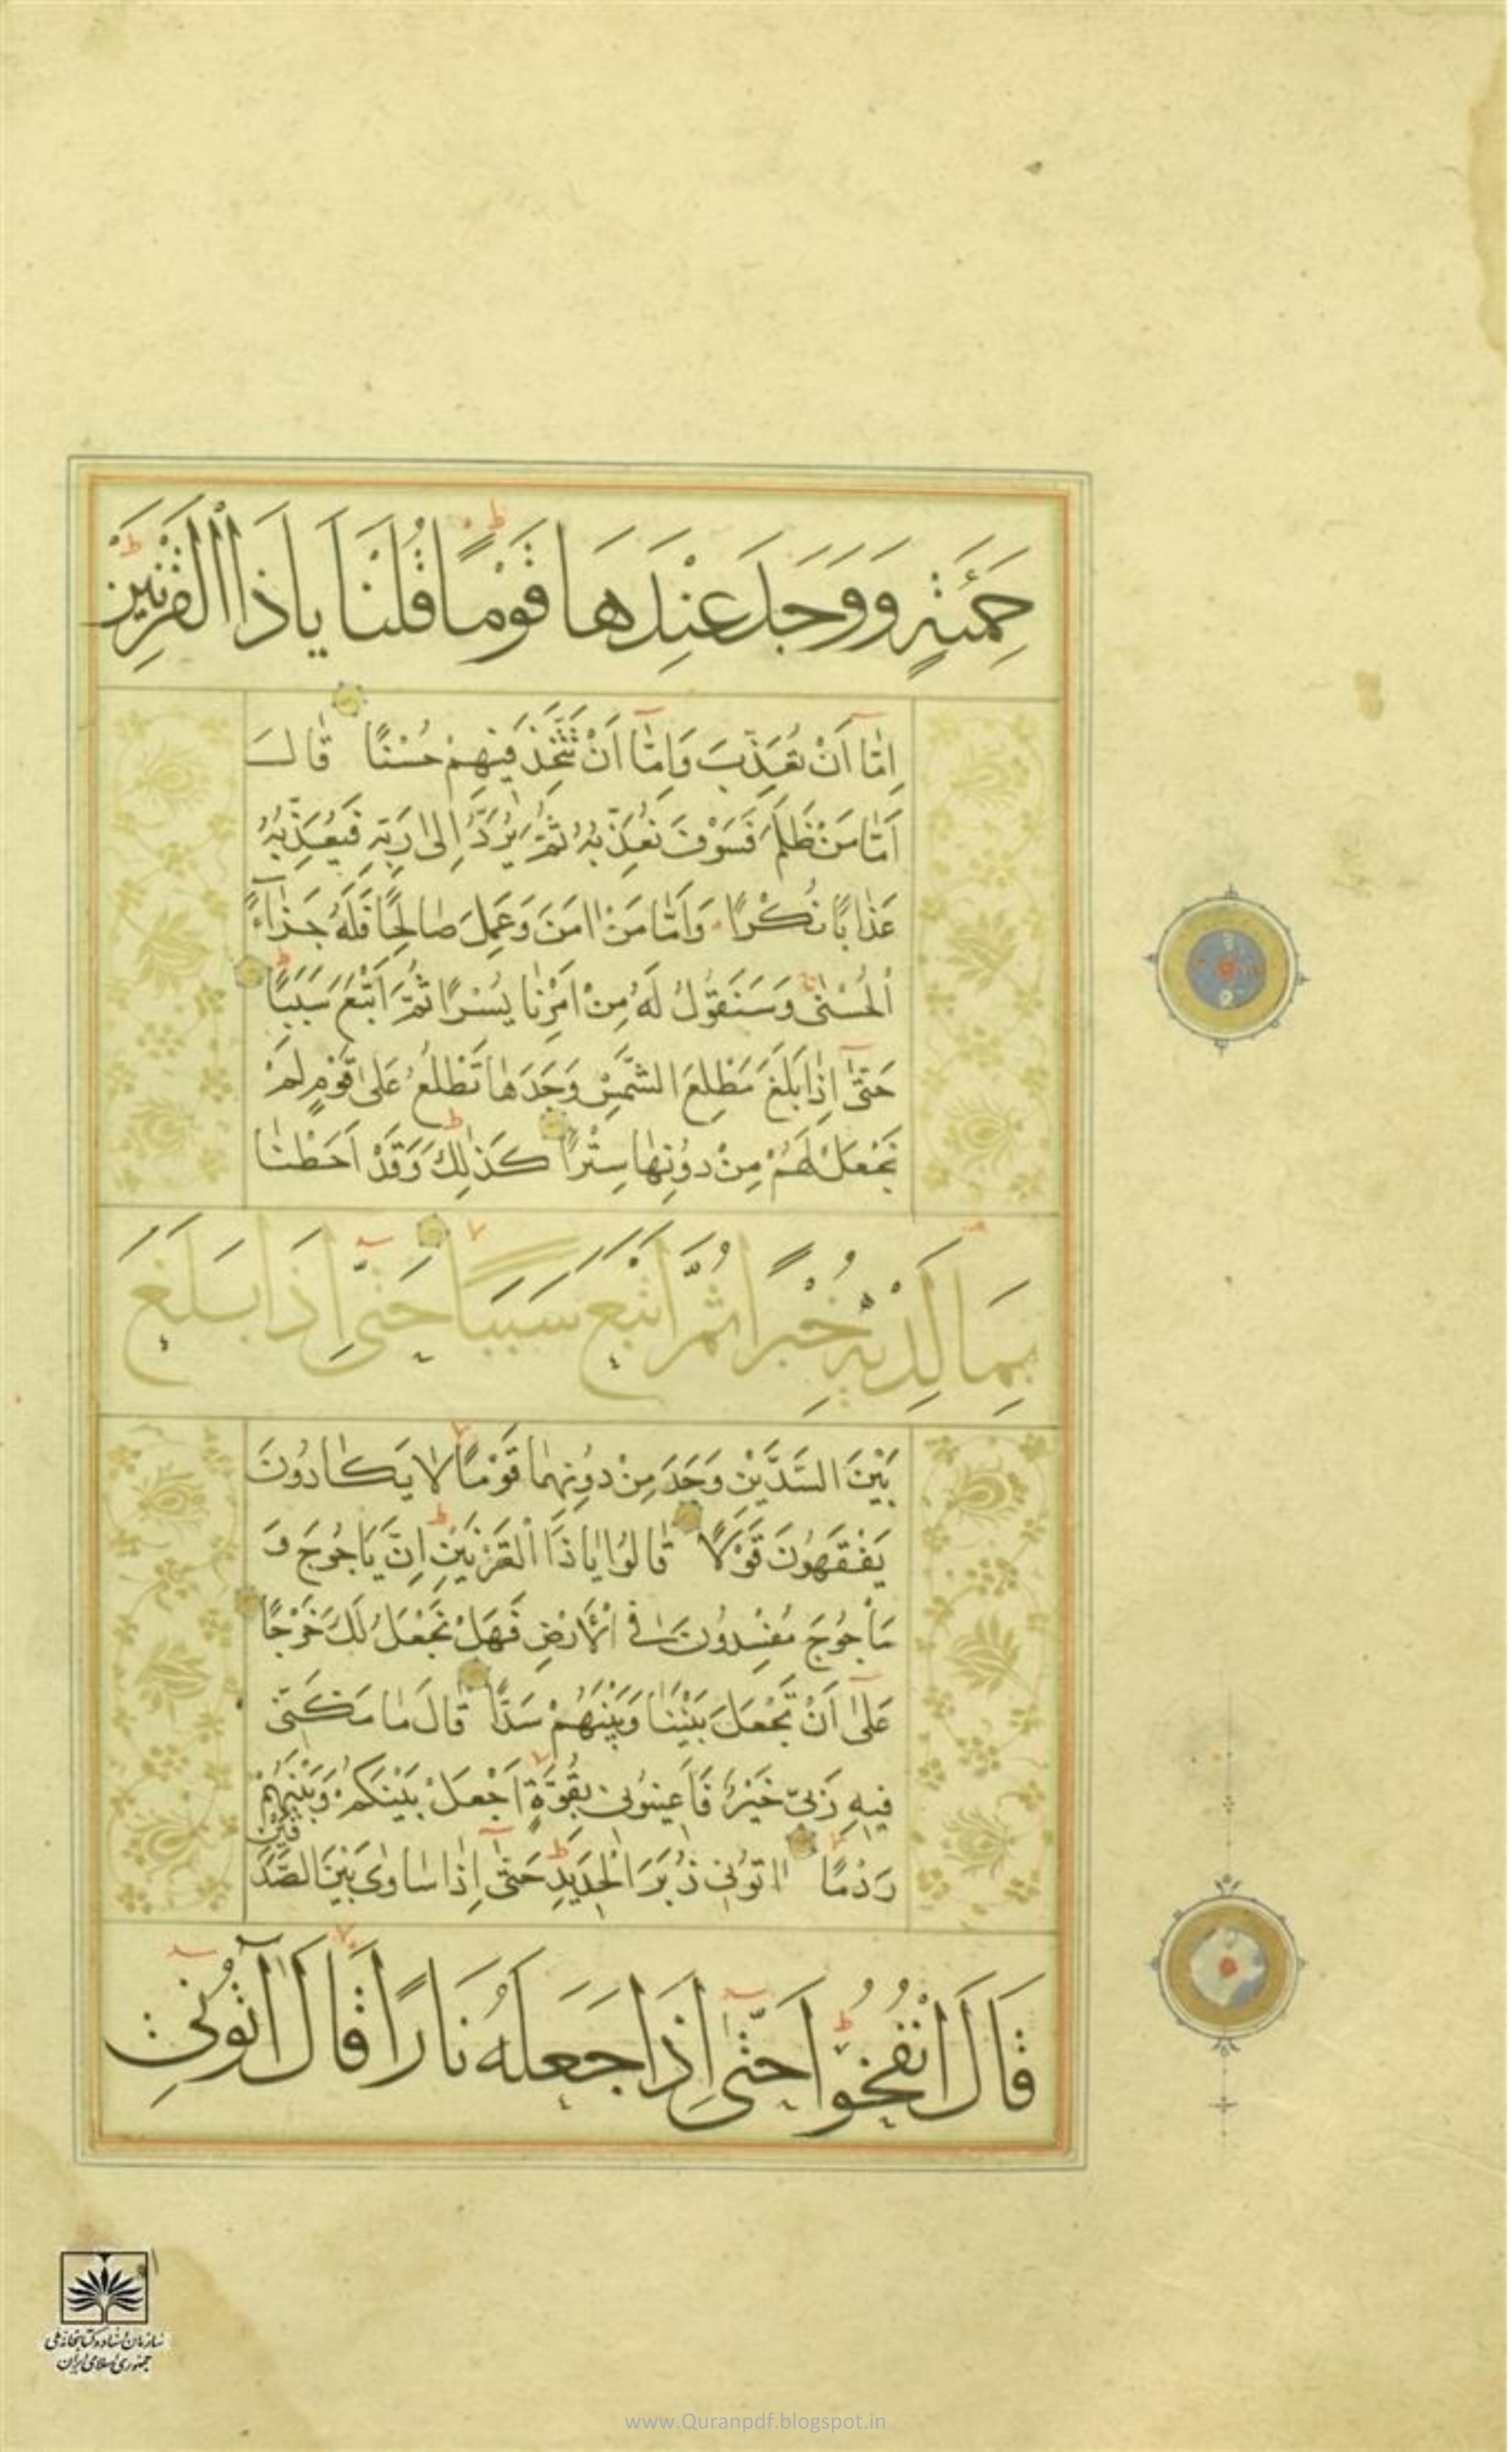 حَمِئَةٍ وَوَجَدَ عِنْدَهَا قَوْمًا قُلْنَا يَاذَا الْقَرْنَيْنِ
اِمَّا اَنْ تُعَذِّبَ وَاِمَّا اَنْ تَتَّخِذَ فِيهِمْ حُسْنًا قَالَ
اَمَّا مَنْ ظَلَمَ فَسَوْفَ نُعَذِّبُهُ ثُمَّ يُرَدُّ اِلٰى رَبِّهٖ فَيُعَذِّبُهُ
عَذَابًا نُكْرًا وَاَمَّا مَنْ اٰمَنَ وَعَمِلَ صَالِحًا فَلَهُ جَزَآءً
اَلْحُسْنٰى وَسَنَقُولُ لَهُ مِنْ اَمْرِنَا يُسْرًا ثُمَّ اَتْبَعَ سَبَبًا
حَتّٰى اِذَا بَلَغَ مَطْلِعَ الشَّمْسِ وَجَدَهَا تَطْلُعُ عَلٰى قَوْمٍ لَمْ
نَجْعَلْ لَهُمْ مِنْ دُونِهَا سِتْرًا كَذٰلِكَ وَقَدْ اَحَطْنَا
بِمَا لَدَيْهِ خُبْرًا ثُمَّ اَتْبَعَ سَبَبًا حَتّٰى اِذَا بَلَغَ
بَيْنَ السَّدَّيْنِ وَجَدَ مِنْ دُونِهِمَا قَوْمًا لَا يَكَادُونَ
يَفْقَهُونَ قَوْلًا قَالُوا يَاذَا الْقَرْنَيْنِ اِنَّ يَاْجُوجَ وَ
مَاْجُوجَ مُفْسِدُونَ فِى الْاَرْضِ فَهَلْ نَجْعَلُ لَكَ خَرْجًا
عَلٰى اَنْ تَجْعَلَ بَيْنَنَا وَبَيْنَهُمْ سَدًّا قَالَ مَا مَكَّنّٰى
فِيهِ رَبِّى خَيْرٌ فَاَعِينُونِى بِقُوَّةٍ اَجْعَلْ بَيْنَكُمْ وَبَيْنَهُمْ
رَدْمًا اٰتُونِى زُبَرَ الْحَدِيدِ حَتّٰى اِذَا سَاوٰى بَيْنَ الصَّدَفَيْنِ
قَالَ انْفُخُوا حَتّٰى اِذَا جَعَلَهُ نَارًا قَالَ اٰتُونِى
سازمان اسناد و کتابخانه ملی
جمهوری اسلامی ایران
www.Quranpdf.blogspot.in